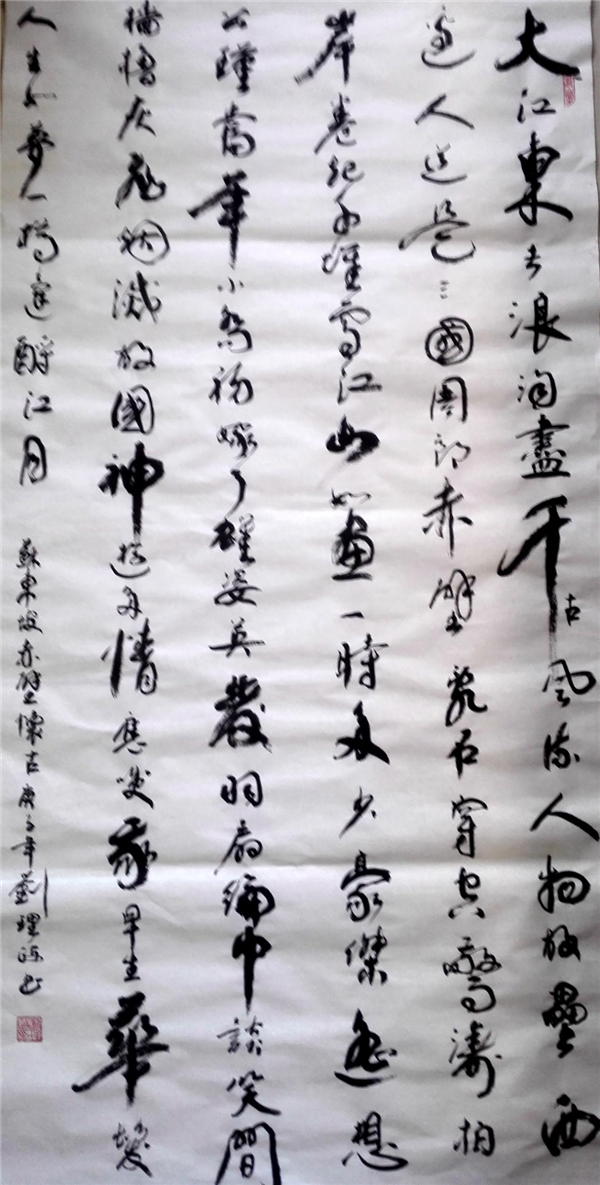 大江東去浪淘盡千古風流人物故壘西
邊人道是三國周郎赤壁亂石穿空驚濤拍
岸卷起千堆雪江山如畫一時多少豪傑遙想
公瑾當年小喬初嫁了雄姿英發羽扇綸巾談笑間
檣櫓灰飛烟滅故國神遊多情應笑我早生華髮
人生如夢一樽還酹江月
蘇東坡赤壁懷古庚子年劉理海書